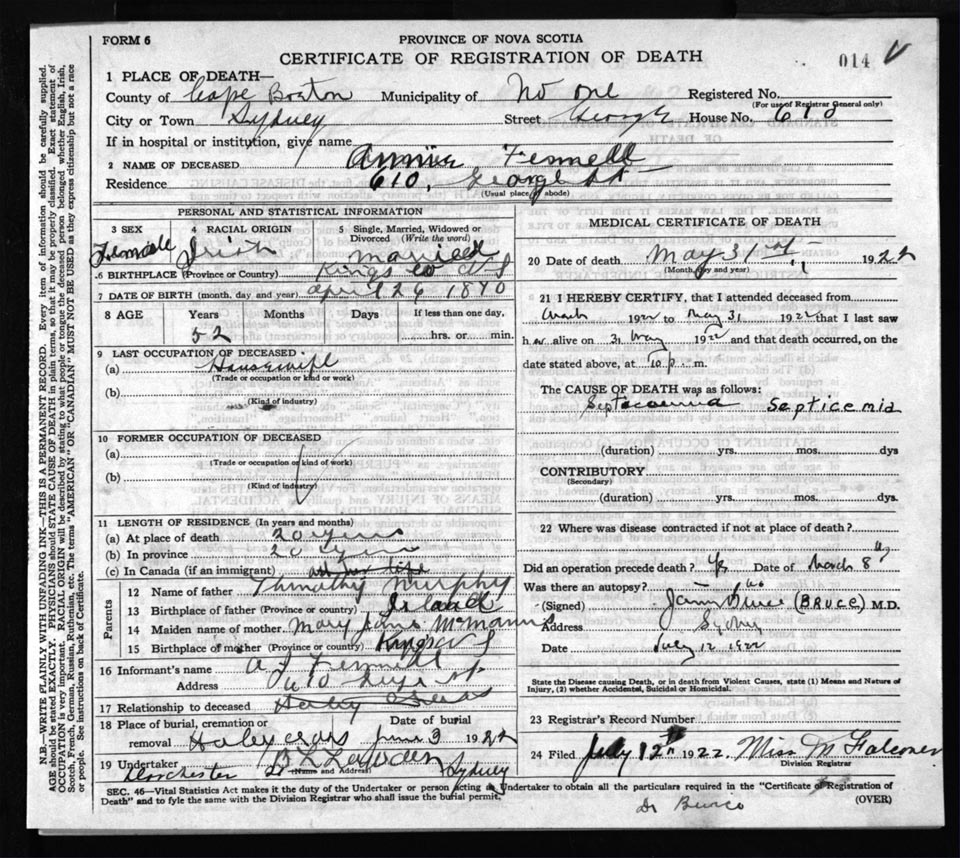 FORM 6
PROVINCE OF NOVA SCOTIA
CERTIFICATE OF REGISTRATION OF DEATH
014
1 PLACE OF DEATH—
County of Cape Breton Municipality of No one Registered No.
(For use of Registrar General only)
City or Town Sydney Street George House No. 610
If in hospital or institution, give name
2 NAME OF DECEASED Annie Fennell
Residence 610, George St
(Usual place of abode)
PERSONAL AND STATISTICAL INFORMATION
3 SEX 4 RACIAL ORIGIN 5 Single, Married, Widowed or Divorced (Write the word)
Female Irish married
6 BIRTHPLACE (Province or Country) Kings Co N S
7 DATE OF BIRTH (month, day and year) April 26 1870
8 AGE Years Months Days If less than one day,
52 hrs. or min.
9 LAST OCCUPATION OF DECEASED
(a) Housewife
(Trade or occupation or kind or work)
(b)
(Kind of industry)
10 FORMER OCCUPATION OF DECEASED
(a)
(Trade or occupation or kind of work)
(b)
(Kind of industry)
11 LENGTH OF RESIDENCE (In years and months)
(a) At place of death 20 years
(b) In province 20 years
(c) In Canada (if an immigrant) all her life
Parents
12 Name of father Thimothy Murphy
13 Birthplace of father (Province or country) Irland
14 Maiden name of mother Mary Jane McMannis
15 Birthplace of mother (Province or country) Kings Co N S
16 Informant's name A J Fennell
Address 610 St
17 Relationship to deceased
18 Place of burial, cremation or removal Date of burial
June 3 1922
19 Undertaker
(Name and Address)
Dorchester St Sydney
MEDICAL CERTIFICATE OF DEATH
20 Date of death May 31st 1922
(Month, day and year)
21 I HEREBY CERTIFY, that I attended deceased from
March 1922 to May 31 1922 that I last saw
her alive on 31 May 1922 and that death occurred, on the
date stated above, at 10 p. m.
The CAUSE OF DEATH was as follows:
Septicemia
(duration) yrs. mos. dys
CONTRIBUTORY
(Secondary)
(duration) yrs. mos. dys.
22 Where was disease contracted if not at place of death?
Did an operation precede death? Yes Date of March 8th
Was there an autopsy? no
(Signed) Bruce (BRUCE) M.D.
Address Sydney
Date July 12 1922
State the Disease causing Death, or in death from Violent Causes, state (1) Means and Nature of Injury, (2) whether Accidental, Suicidal or Homicidal.
23 Registrar's Record Number
24 Filed July 12th 1922 Miss M Falconer
Division Registrar
SEC. 46—Vital Statistics Act makes it the duty of the Undertaker or person acting as Undertaker to obtain all the particulars required in the "Certificate of Registration of
Death" and to fyle the same with the Division Registrar who shall issue the burial permit.
(OVER)
Dr Bruce
N.B.—WRITE PLAINLY WITH UNFADING INK—THIS IS A PERMANENT RECORD. Every item of information should be carefully supplied.
AGE should be stated EXACTLY. PHYSICIANS should STATE CAUSE OF DEATH in plain terms, so that it may be properly classified. Exact statement of
OCCUPATION is very important. RACIAL ORIGIN will be described by stating to what people or tongue the deceased person belonged whether English, Irish,
Scotch, French, German, Russian, Ruthenian, etc. The terms "AMERICAN" or "CANADIAN" MUST NOT BE USED as they express citizenship but not a race
or people. See instructions on back of Certificate.